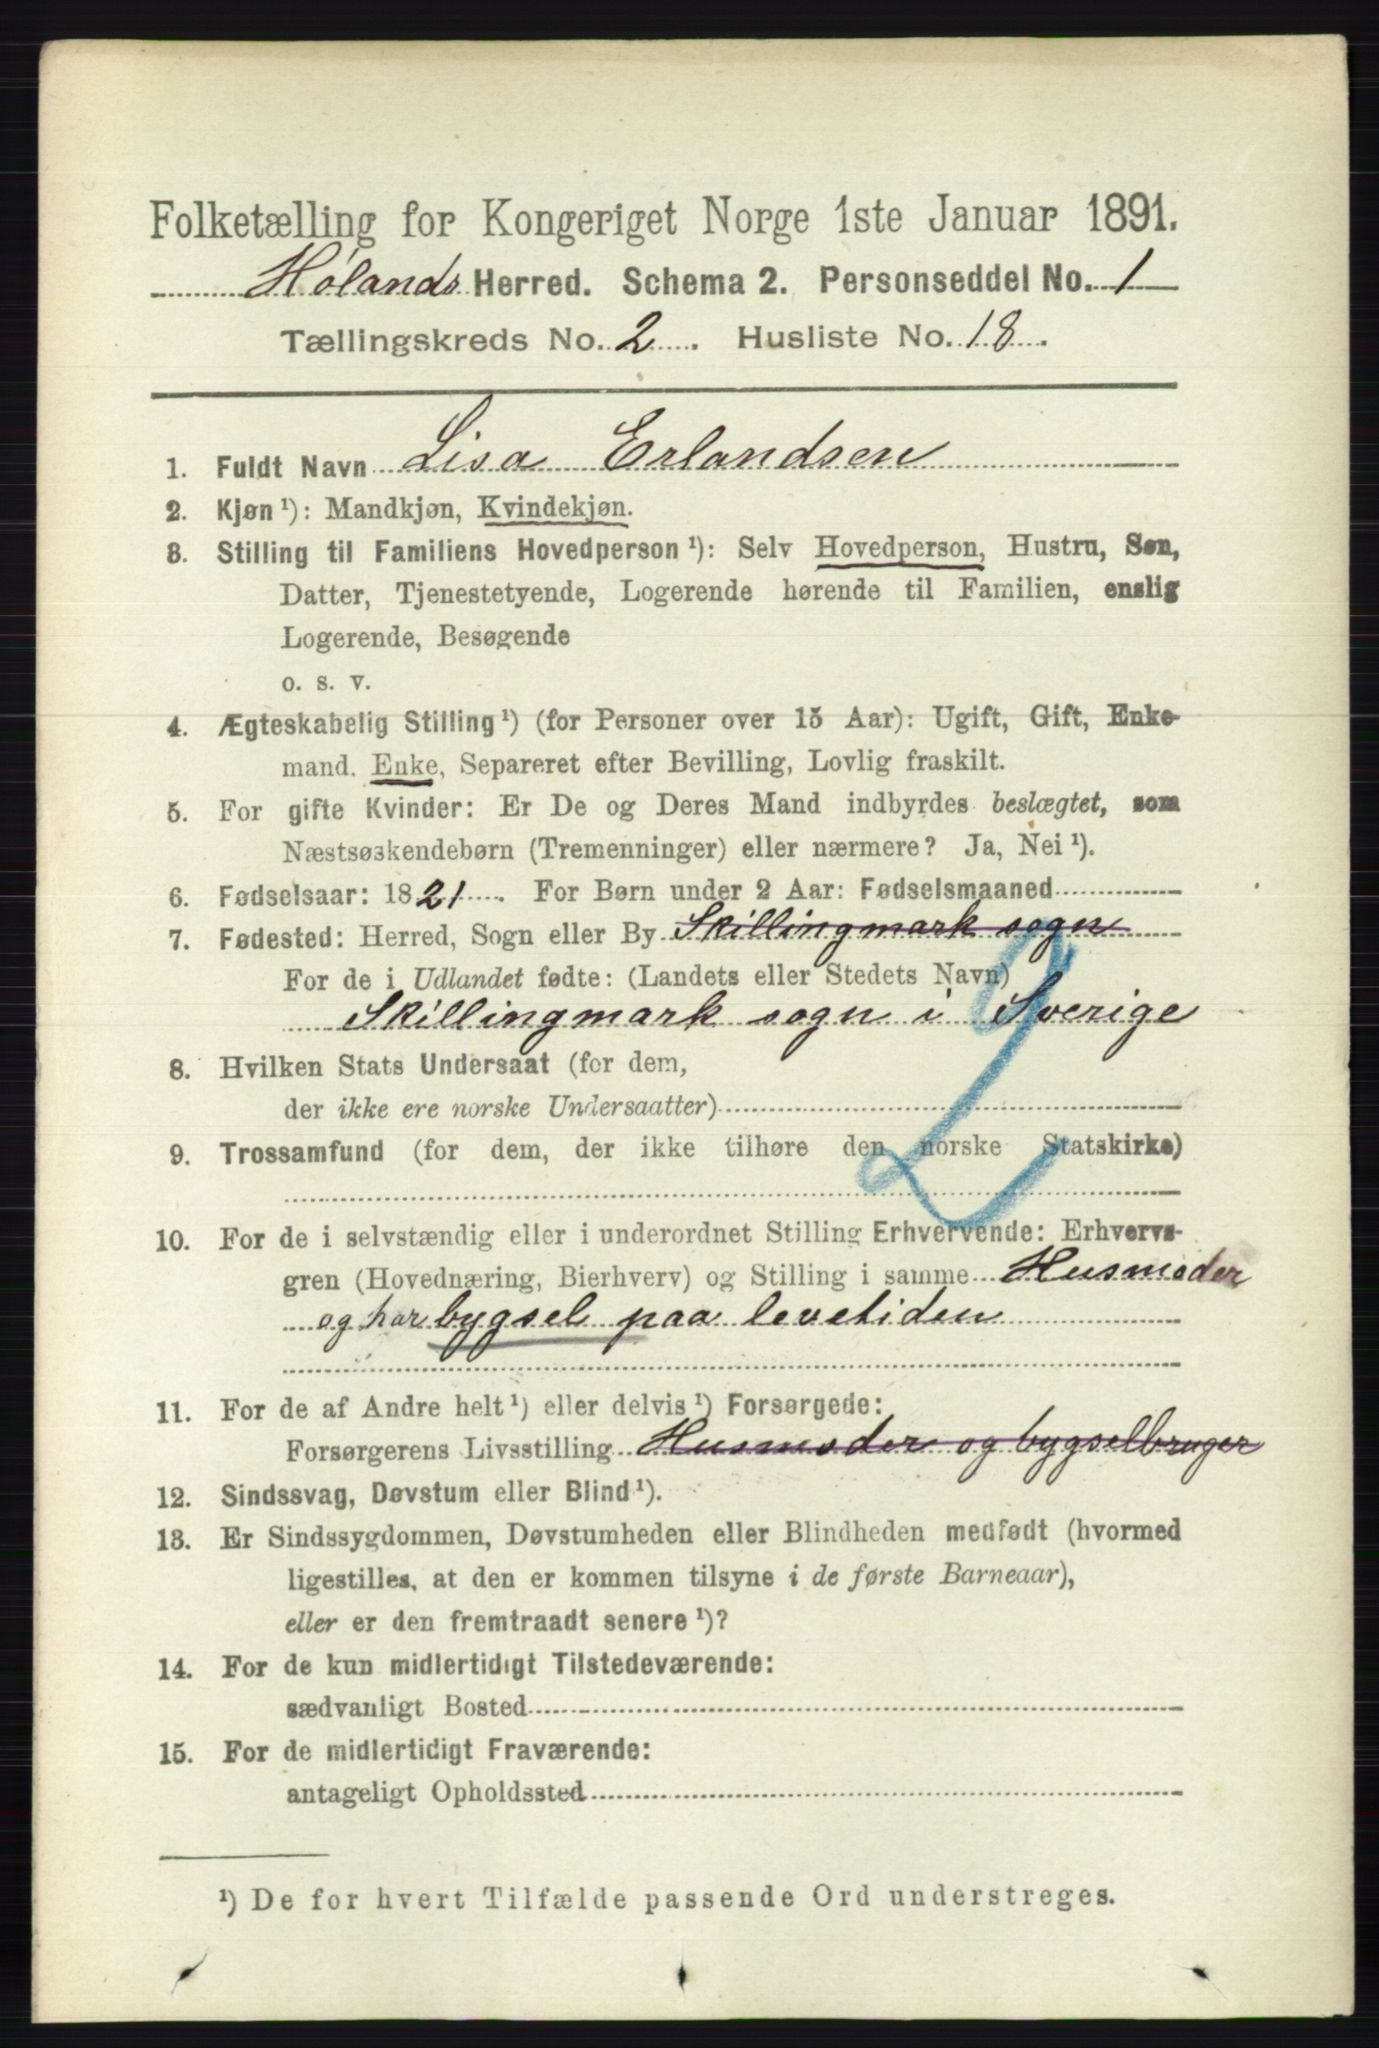 Folketælling for Kongeriget Norge 1ste Januar 1891.
Hølands Herred. Schema 2. Personseddel No. 1
Tællingskreds No. 2. Husliste No. 18.
1. Fuldt Navn Lisa Erlandsen
2. Kjøn ¹): Mandkjøn, Kvindekjøn.
3. Stilling til Familiens Hovedperson ¹): Selv Hovedperson, Hustru, Søn,
Datter, Tjenestetyende, Logerende hørende til Familien, enslig
Logerende, Besøgende
o. s. v.
4. Ægteskabelig Stilling ¹) (for Personer over 15 Aar): Ugift, Gift, Enke-
mand, Enke, Separeret efter Bevilling, Lovlig fraskilt.
5. For gifte Kvinder: Er De og Deres Mand indbyrdes beslægtet, som
Næstsøskendebørn (Tremenninger) eller nærmere? Ja, Nei ¹).
6. Fødselsaar: 1821. For Børn under 2 Aar: Fødselsmaaned
7. Fødested: Herred, Sogn eller By Skillingmark sogn
For de i Udlandet fødte: (Landets eller Stedets Navn)
Skillingmark sogn i Sverige
2
8. Hvilken Stats Undersaat (for dem,
der ikke ere norske Undersaatter)
9. Trossamfund (for dem, der ikke tilhøre den norske Statskirke)
10. For de i selvstændig eller i underordnet Stilling Erhvervende: Erhvervs-
gren (Hovednæring, Bierhverv) og Stilling i samme Husmoder
og har bygsel paa levetiden
11. For de af Andre helt ¹) eller delvis ¹) Forsørgede:
Forsørgerens Livsstilling Husmoder og bygselbruger
12. Sindssvag, Døvstum eller Blind ¹).
13. Er Sindssygdommen, Døvstumheden eller Blindheden medfødt (hvormed
ligestilles, at den er kommen tilsyne i de første Barneaar),
eller er den fremtraadt senere ¹)?
14. For de kun midlertidigt Tilstedeværende:
sædvanligt Bosted
15. For de midlertidigt Fraværende:
antageligt Opholdssted
¹) De for hvert Tilfælde passende Ord understreges.